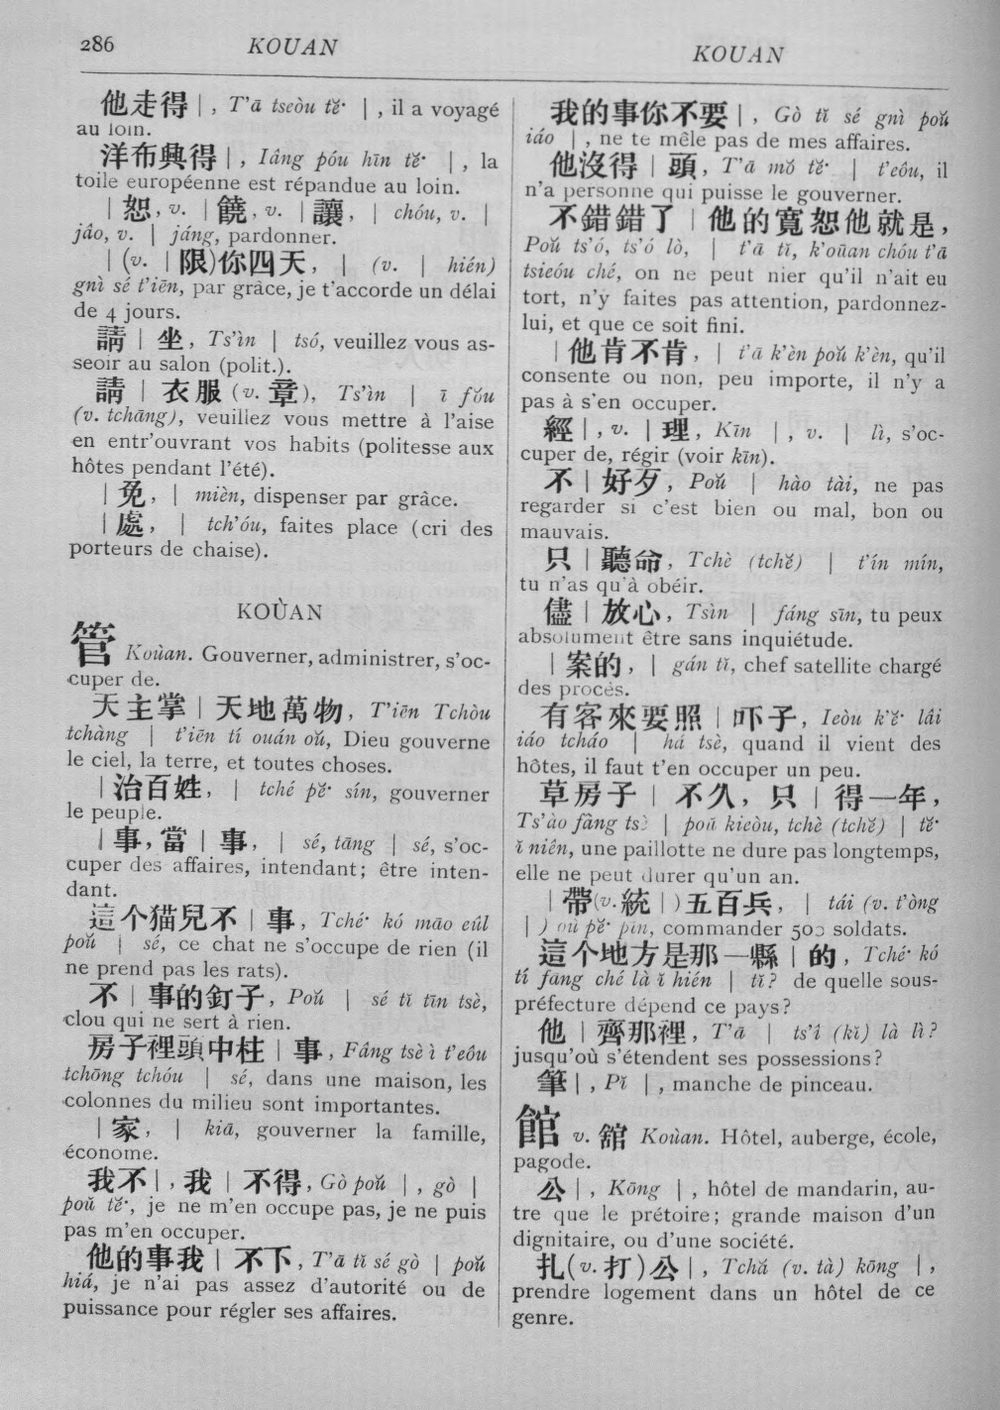 286
KOUAN
KOUAN
他走得 | , T'ā tseòu tĕ· | , il a voyagé
au loin.
洋布興得 | , Iâng póu hīn tĕ· | , la
toile européenne est répandue au loin.
| 恕, v. | 饒, v. | 讓, | chóu, v. |
jâo, v. | jáng, pardonner.
| (v. | 限) 你四天, | (v. | hién)
gnì sé t'iēn, par grâce, je t'accorde un délai
de 4 jours.
請 | 坐, Ts'ìn | tsó, veuillez vous as-
seoir au salon (polit.).
請 | 衣服 (v. 章), Ts'ìn | ī fŏu
(v. tchāng), veuillez vous mettre à l'aise
en entr'ouvrant vos habits (politesse aux
hôtes pendant l'été).
| 免, | mièn, dispenser par grâce.
| 處, | tch'óu, faites place (cri des
porteurs de chaise).
KOÙAN
管 Koùan. Gouverner, administrer, s'oc-
cuper de.
天主掌 | 天地萬物, T'iēn Tchòu
tchàng | t'iēn tí ouán oŭ, Dieu gouverne
le ciel, la terre, et toutes choses.
| 治百姓, | tché pĕ· sín, gouverner
le peuple.
| 事, 當 | 事, | sé, tāng | sé, s'oc-
cuper des affaires, intendant; être inten-
dant.
這个猫兒不 | 事, Tché· kó māo eûl
poŭ | sé, ce chat ne s'occupe de rien (il
ne prend pas les rats).
不 | 事的釘子, Poŭ | sé tĭ tīn tsè,
clou qui ne sert à rien.
房子裡頭中柱 | 事, Fâng tsè ì t'eôu
tchōng tchóu | sé, dans une maison, les
colonnes du milieu sont importantes.
| 家, | kiā, gouverner la famille,
économe.
我不 | , 我 | 不得, Gò poŭ | , gò |
poŭ tĕ·, je ne m'en occupe pas, je ne puis
pas m'en occuper.
他的事我 | 不下, T'ā tĭ sé gò | poŭ
hiá, je n'ai pas assez d'autorité ou de
puissance pour régler ses affaires.
我的事你不要 | , Gò tĭ sé gnì poŭ
iáo | , ne te mêle pas de mes affaires.
他沒得 | 頭, T'ā mŏ tĕ· | t'eôu, il
n'a personne qui puisse le gouverner.
不錯錯了 | 他的寬恕他就是,
Poŭ ts'ó, ts'ó lò, | t'ā tĭ, k'oūan chóu t'ā
tsieóu ché, on ne peut nier qu'il n'ait eu
tort, n'y faites pas attention, pardonnez-
lui, et que ce soit fini.
| 他肯不肯, | t'ā k'èn poŭ k'èn, qu'il
consente ou non, peu importe, il n'y a
pas à s'en occuper.
經 | , v. | 理, Kīn | , v. | lì, s'oc-
cuper de, régir (voir kīn).
不 | 好歹, Poŭ | hào tài, ne pas
regarder si c'est bien ou mal, bon ou
mauvais.
只 | 聽命, Tchè (tchĕ) | t'ín mín,
tu n'as qu'à obéir.
儘 | 放心, Tsìn | fáng sīn, tu peux
absolument être sans inquiétude.
| 案的, | gán tĭ, chef satellite chargé
des procès.
有客來要照 | 吓子, Ieòu k'ĕ· lâi
iáo tcháo | há tsè, quand il vient des
hôtes, il faut t'en occuper un peu.
草房子 | 不久, 只 | 得一年,
Ts'ào fâng tsè | poŭ kieòu, tchè (tchĕ) | tĕ·
ĭ niên, une paillotte ne dure pas longtemps,
elle ne peut durer qu'un an.
| 帶 (v. 統 | ) 五百兵, | tái (v. t'òng
| ) où pĕ· pīn, commander 500 soldats.
這个地方是那一縣 | 的, Tché· kó
tí fāng ché là ĭ hién | tĭ? de quelle sous-
préfecture dépend ce pays?
他 | 齊那裡, T'ā | ts'î (kĭ) là lì?
jusqu'où s'étendent ses possessions?
筆 | , Pĭ | , manche de pinceau.
館 v. 舘 Koùan. Hôtel, auberge, école,
pagode.
公 | , Kōng | , hôtel de mandarin, au-
tre que le prétoire; grande maison d'un
dignitaire, ou d'une société.
扎 (v. 打) 公 | , Tchă (v. tà) kōng | ,
prendre logement dans un hôtel de ce
genre.